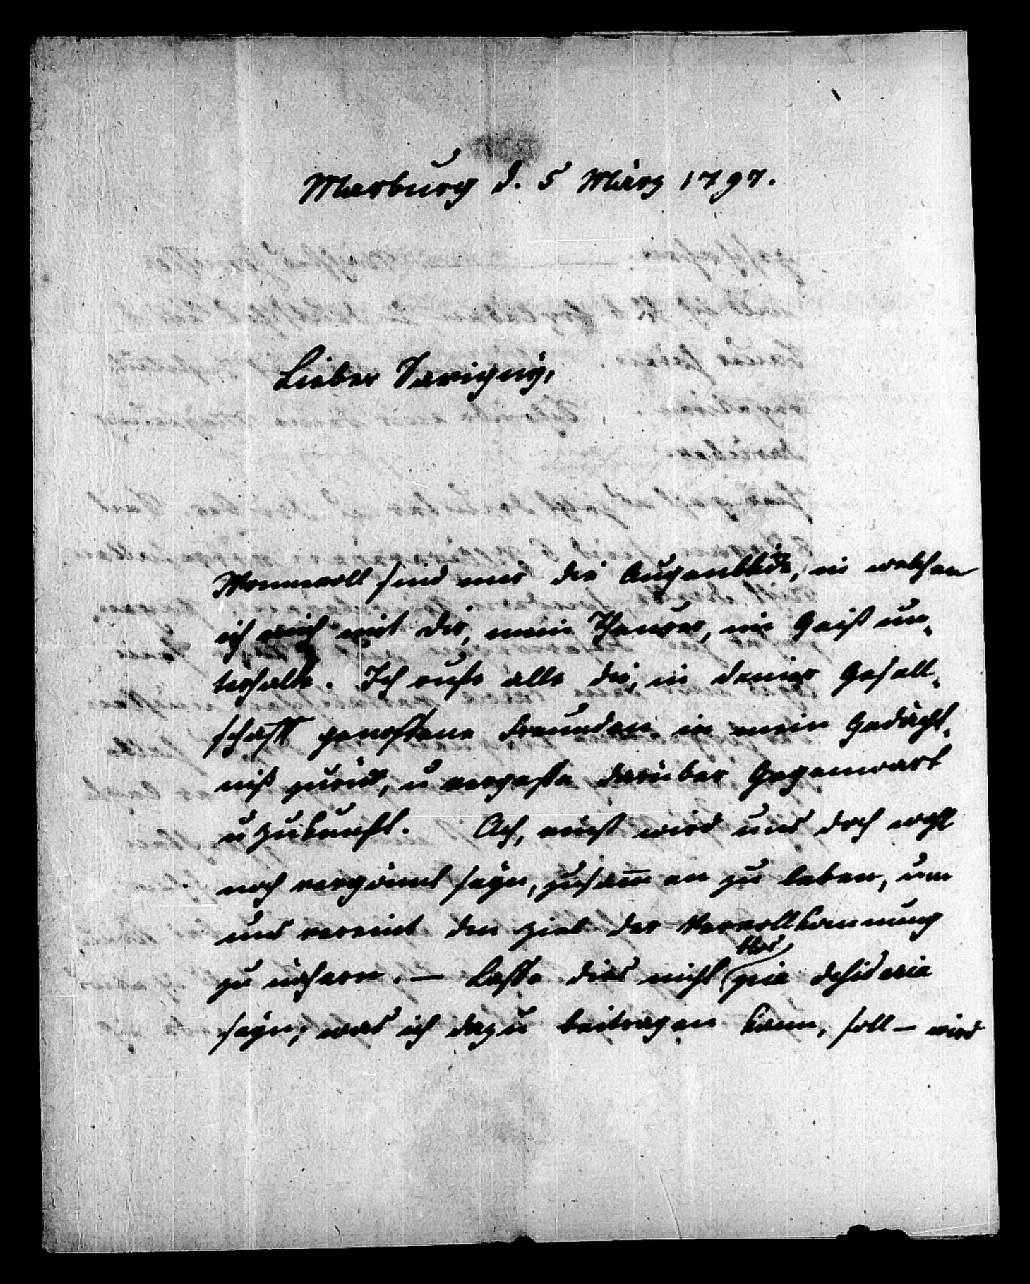 Marburg d. 5 März 1797.
Lieber Savigny,
Wonnevoll sind mir die Augenblicke, in welchen
ich mich mit dir, mein Theurer, im Geist un-
terhalte. Ich rufe alle die, in deiner Gesell-
schaft genossene Freunden in mein Gedächt-
niß zurück, u vergesse darüber Gegenwart
u Zukunft. Ach, einst wird uns doch wohl
noch vergönnt seyn, zusam̅en zu leben, um
uns vereint dem Ziel der Vervollkomnung
zu nähern. — Lasse dies nicht pia desideria
seyn; was ich dazu beitragen kann, soll — wird